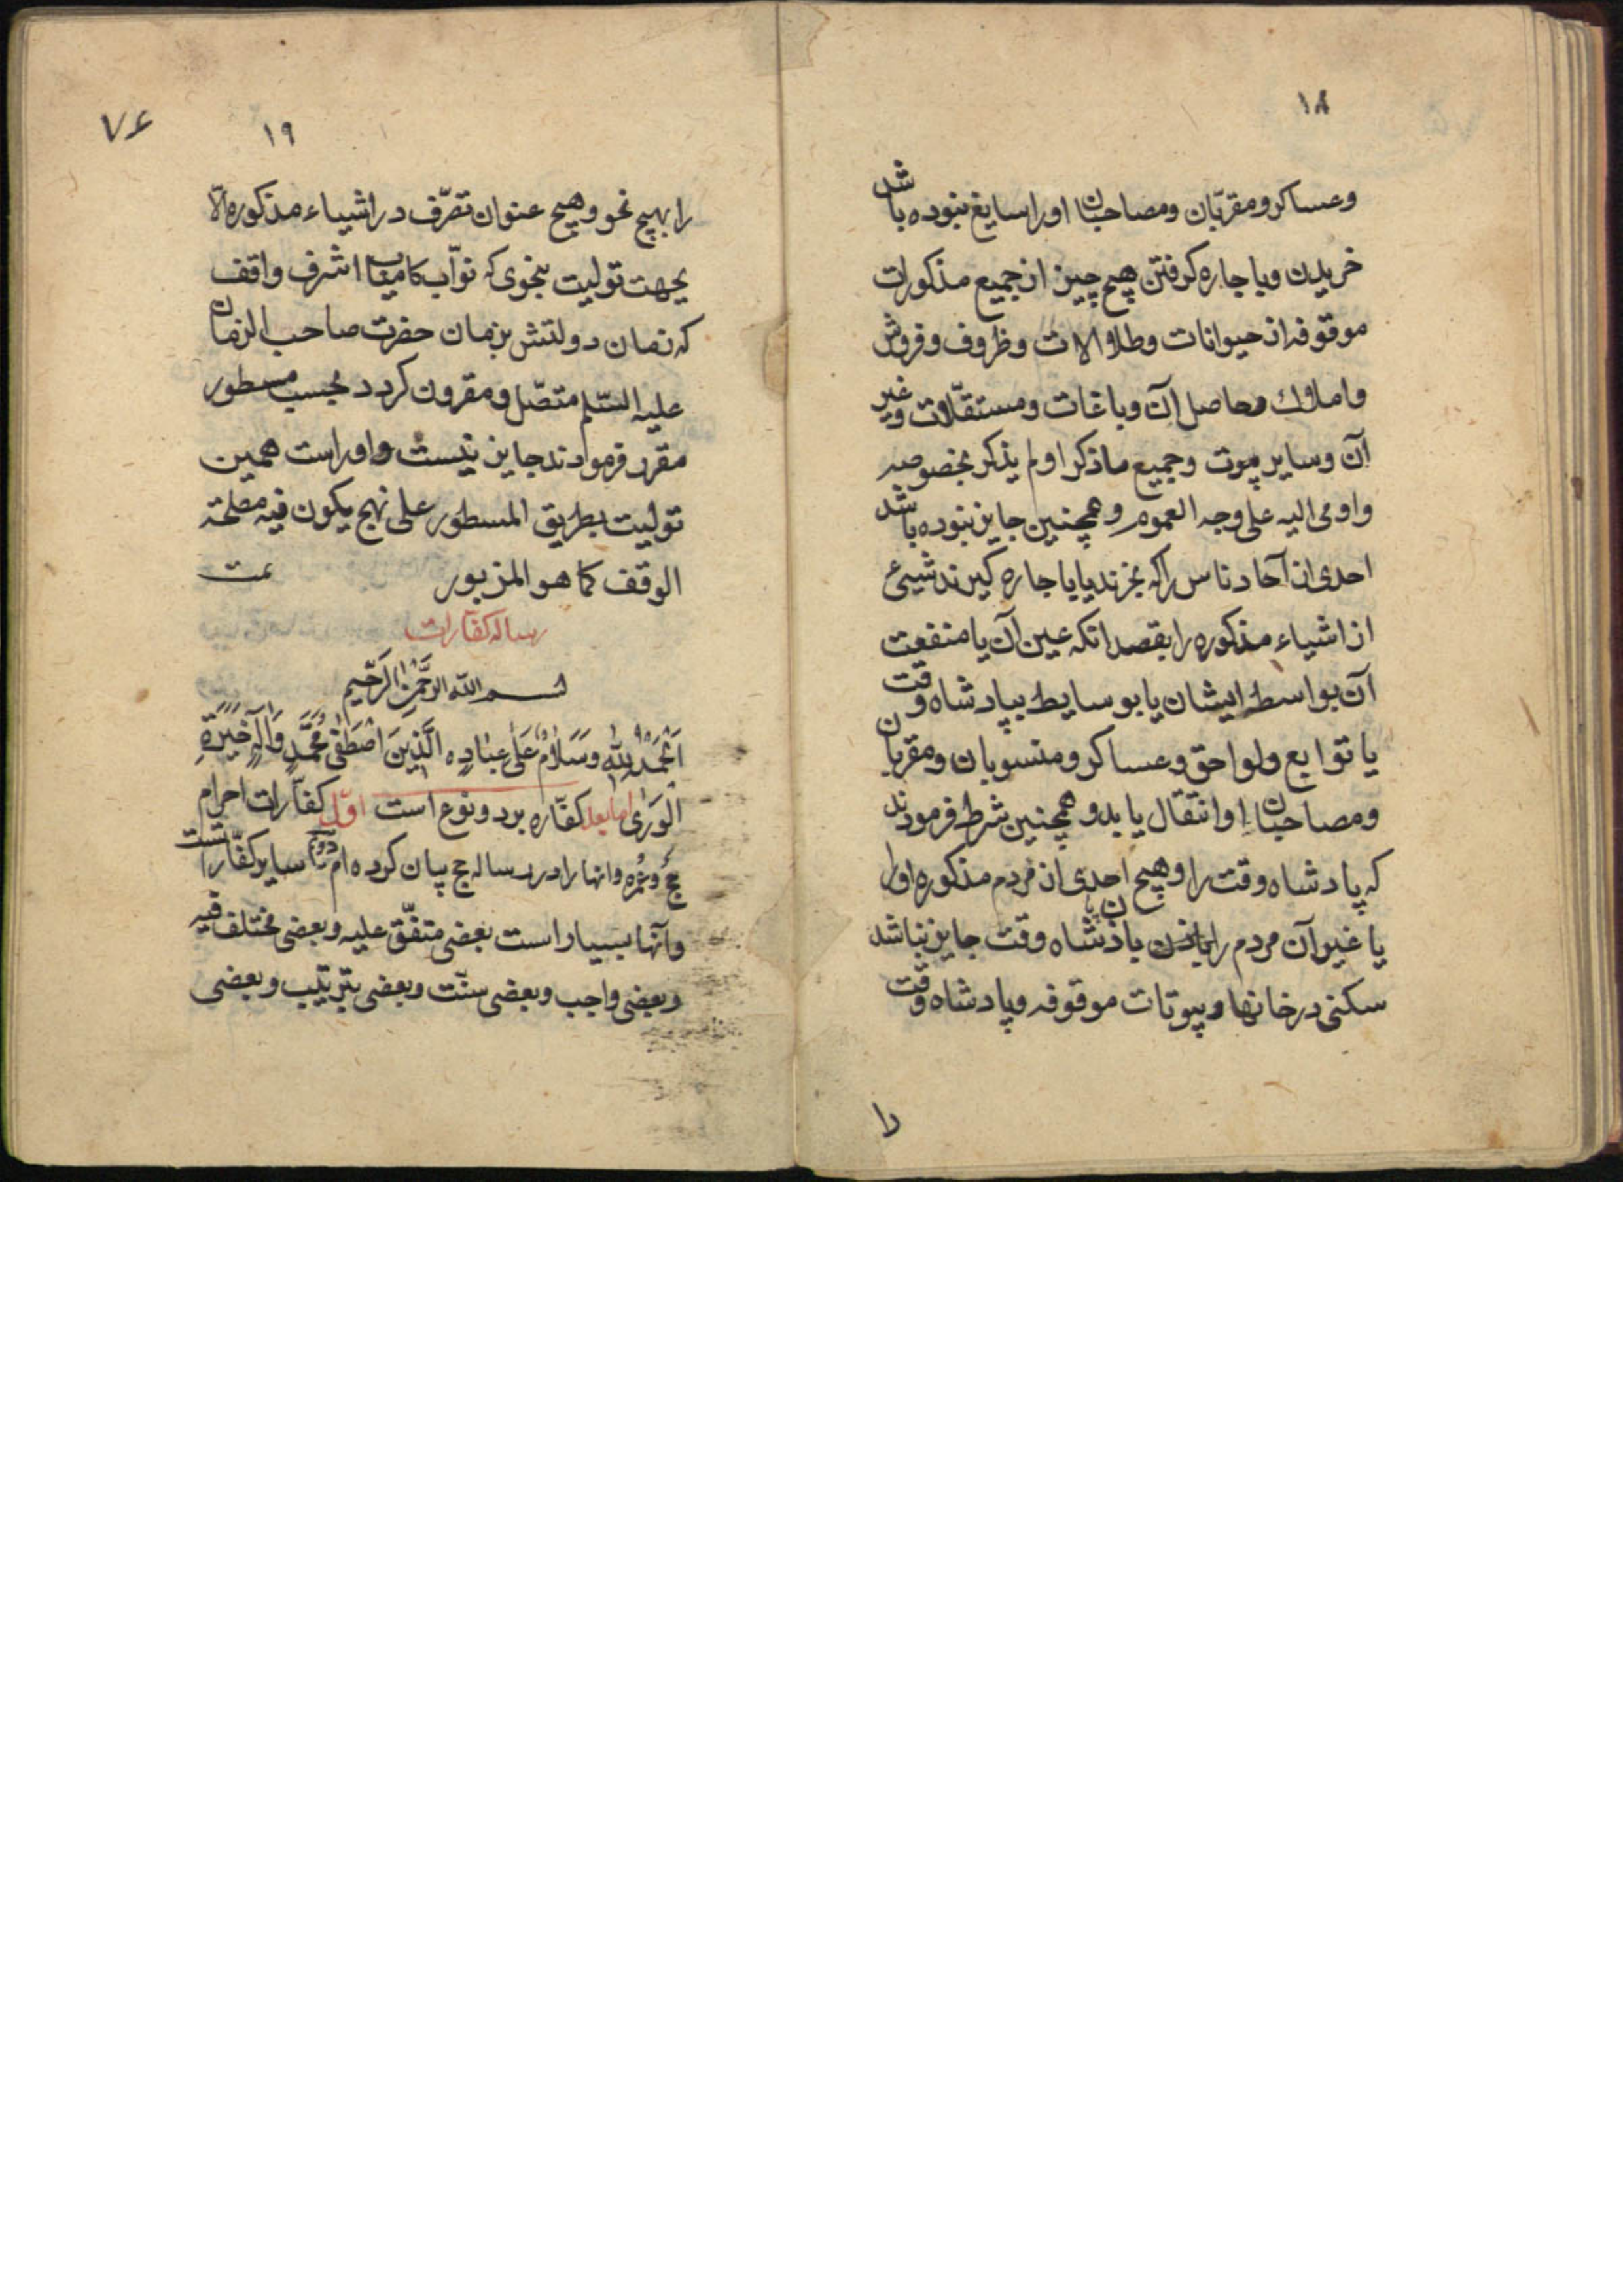 ۱۸
وعساکر و مقربّان ومصاحبان اورا سایغ نبوده باشد
خریدن و باجاره کرفتن هیچ چیز از جمیع مذکورات
موقوفه از حیوانات وطلاوالات وظروف وفروش
واملاک وحاصل آن وباغات ومستقلّات وغیر
آن وسایر بیوت وجمیع ماذکر اولم یذکر بخصوصه
واومی الیه علی وجه العموم وهمچنین جایز نبوده باشد
احدی از آحاد ناس راکه بخرند یا باجاره کیرند شییء
از اشیاء مذکوره را بقصد انکه عین آن یا منفعت
آن بواسطه ایشان یا بوسایط بپادشاه وقت
یا توابع ولواحق وعساکر ومنسوبان ومقربان
ومصاحبان او انتقال یابد وهمچنین شرط فرمودند
که پادشاه وقت را وهیچ احدی از مردم مذکوره اورا
یا غیر آن مردم را باذن پادشاه وقت جایز نباشد
سکنی در خانها وبیوتات موقوفه وپادشاه وقت
را
۷۶
۱۹
را بهیچ نحو وهیچ عنوان تصرّف در اشیاء مذکوره الّا
بجهت تولیت بنحوی که نوّاب کامیاب اشرف واقف
که زمان دولتش بزمان حضرت صاحب الزمان
علیه السّلم متصّل ومقرون کردد بحسب مسطور
مقرر فرمودند جایز نیست واوراست همین
تولیت بطریق المسطور علی نهج یکون فیه مصلحة
الوقف کما هو المزبور تمت
رساله کفّارات
بسم الله الرَّحْمنِ الرَّحیم
اَلْحَمْدُ لِلّهِ وَسَلامٌ عَلی عِبادِهِ الَّذینَ اصْطَفی مُحَمَّدٍ وَالِهِ خَیْرَةِ
الْوَری اما بعد کفّاره بر دو نوع است اوّل کفّارات احرام
حجّ وعُمْره وانها را در رساله حج بیان کرده ام دوم سایر کفّاراتست
وآنها بسیار است بعضی متفّق علیه وبعضی مختلف فیه
وبعضی واجب وبعضی سنّت وبعضی بترتیب وبعضی